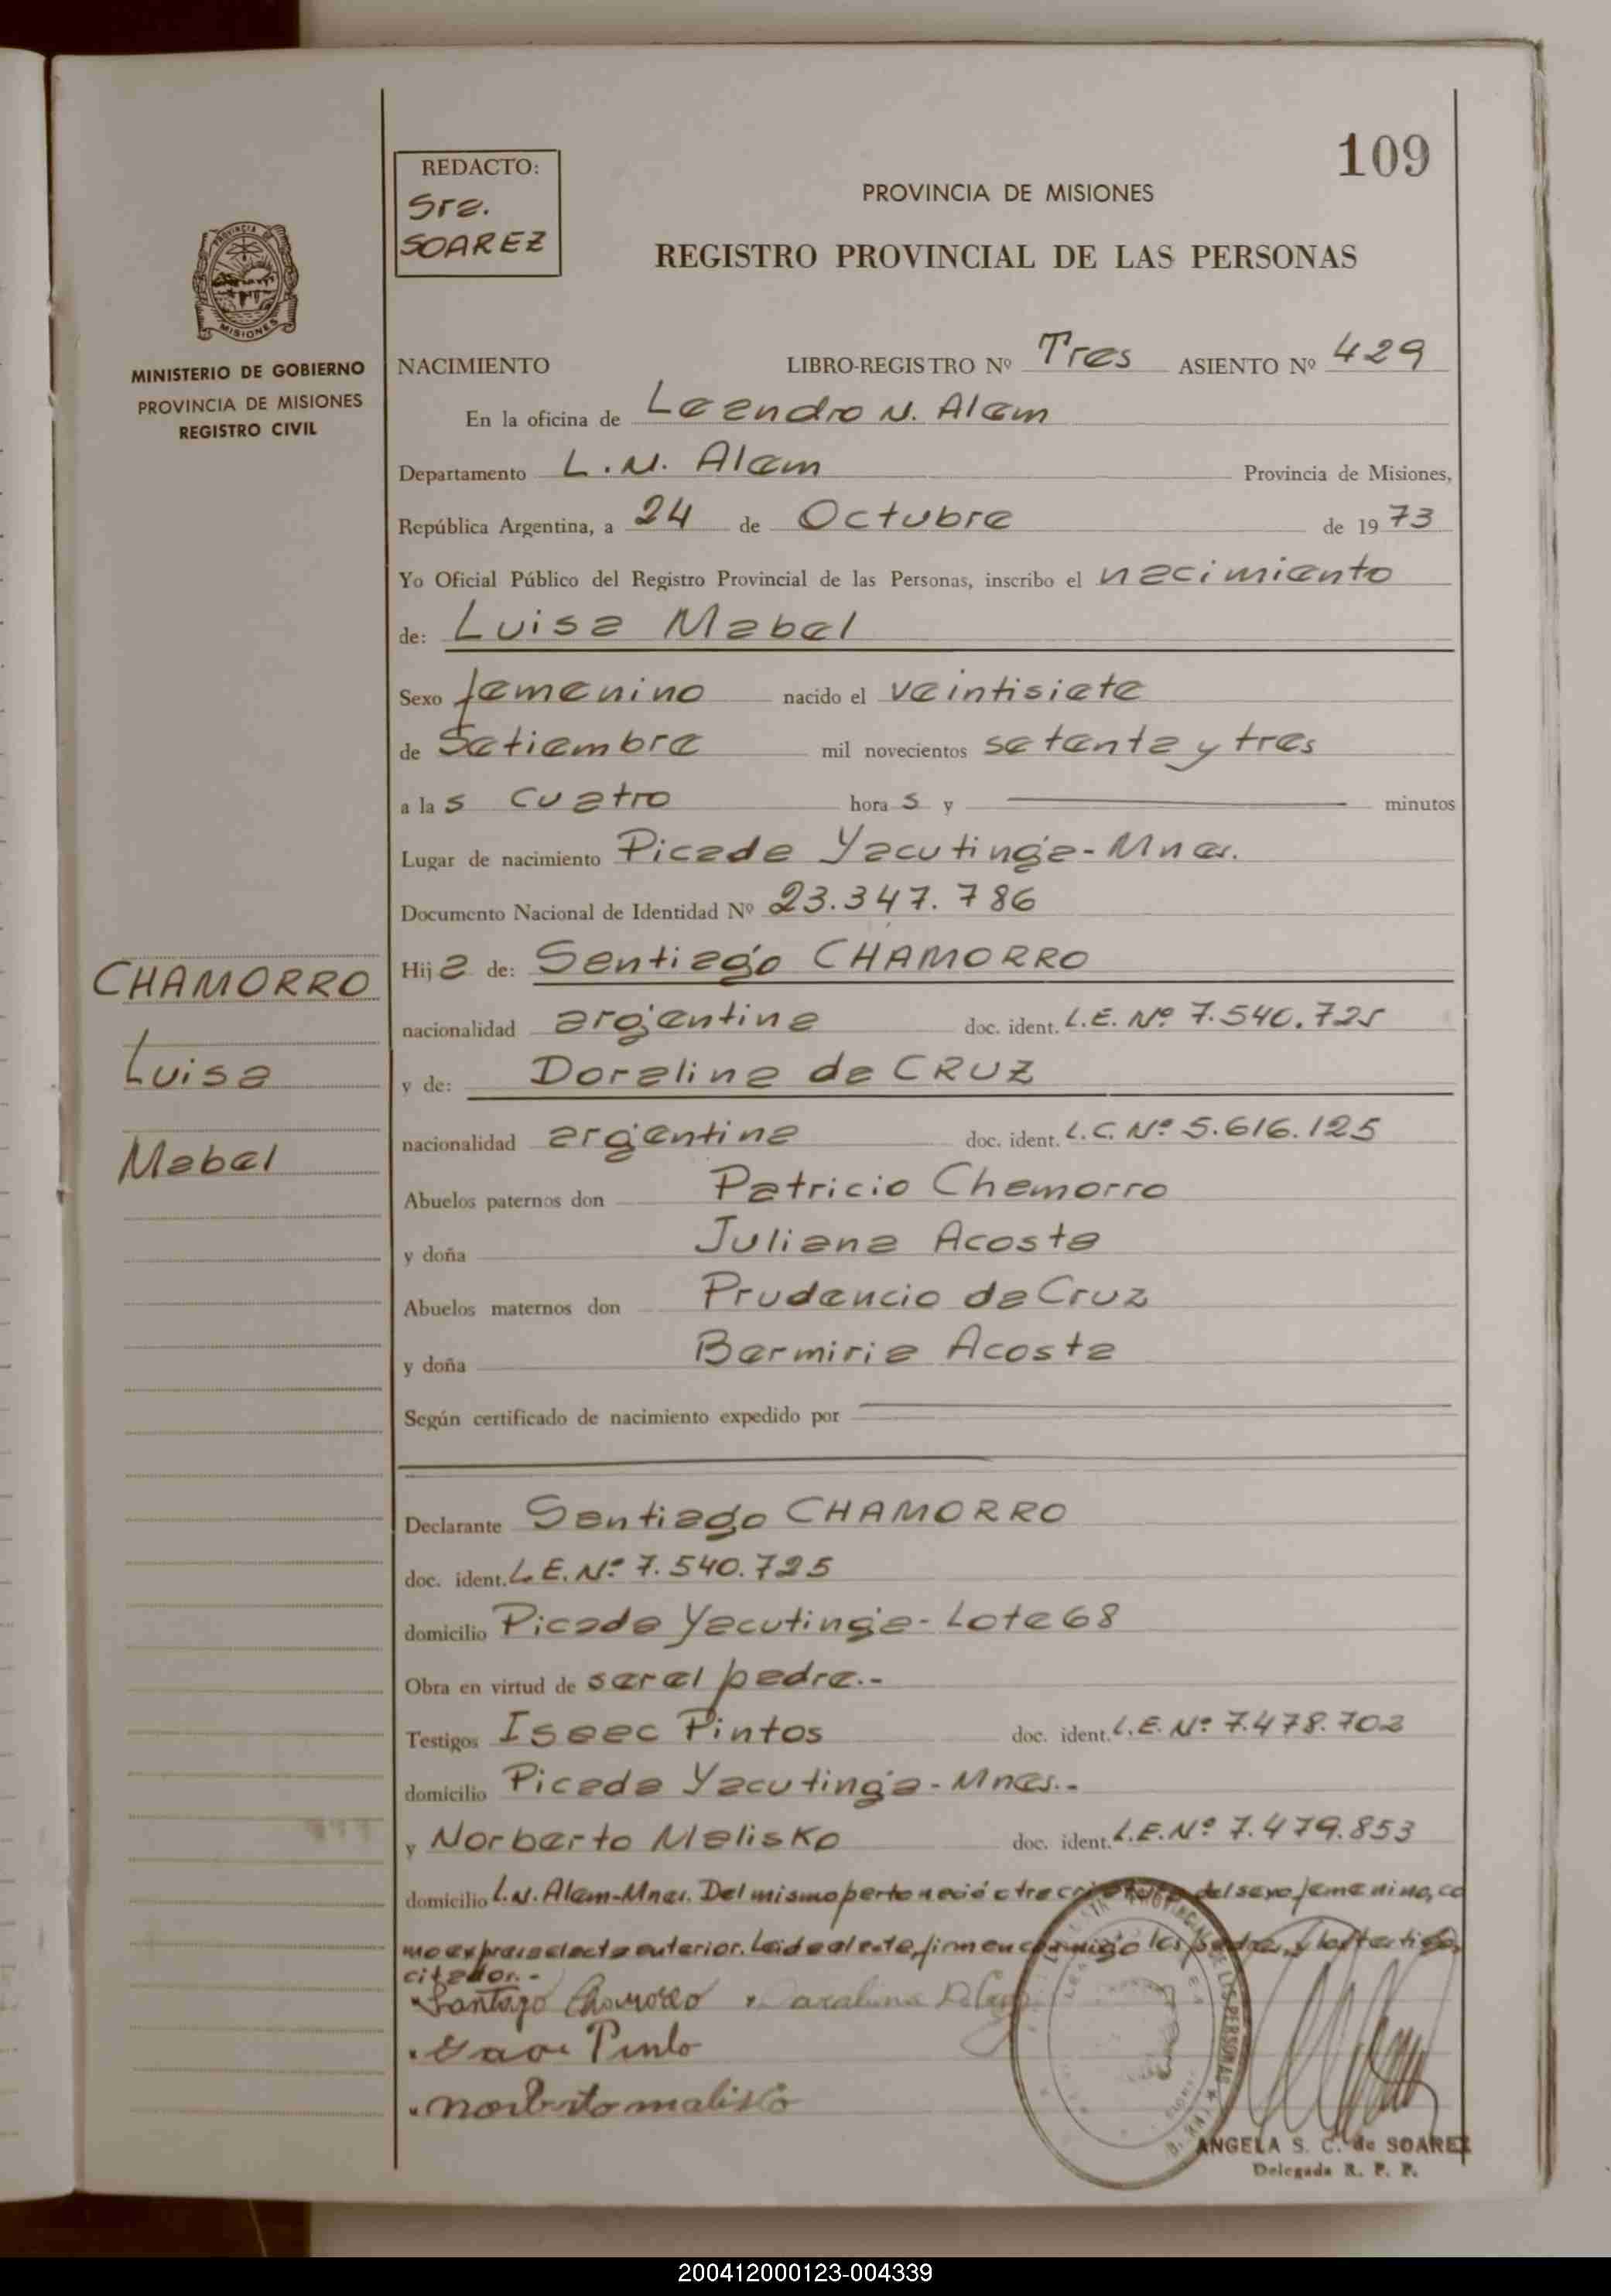 109
REDACTO:
Sra.
SOAREZ
PROVINCIA DE MISIONES
REGISTRO PROVINCIAL DE LAS PERSONAS
MINISTERIO DE GOBIERNO
PROVINCIA DE MISIONES
REGISTRO CIVIL
NACIMIENTO LIBRO-REGISTRO Nº Tres ASIENTO Nº 429
En la oficina de Leandro N. Alem
Departamento L.N. Alem Provincia de Misiones,
República Argentina, a 24 de Octubre de 1973
Yo Oficial Público del Registro Provincial de las Personas, inscribo el nacimiento
de: Luisa Mabel
Sexo femenino nacido el veintisiete
de Setiembre mil novecientos setenta y tres
a las cuatro horas y minutos
Lugar de nacimiento Picada Yacutinga-Mnes.
Documento Nacional de Identidad Nº 23.347.786
CHAMORRO
Luisa
Mabel
Hija de: Santiago CHAMORRO
nacionalidad argentina doc. ident. L.E. Nº 7.540.725
y de: Doralina de CRUZ
nacionalidad argentina doc. ident. L.C. Nº 5.616.125
Abuelos paternos don Patricio Chamorro
y doña Juliana Acosta
Abuelos maternos don Prudencio de Cruz
y doña Bermiria Acosta
Según certificado de nacimiento expedido por
Declarante Santiago CHAMORRO
doc. ident. L.E. Nº 7.540.725
domicilio Picada Yacutinga-Lote 68
Obra en virtud de ser el padre.-
Testigos Isaac Pintos doc. ident. L.E. Nº 7.478.702
domicilio Picada Yacutinga-Mnes.-
y Norberto Malisko doc. ident. L.E. Nº 7.479.853
domicilio L.N. Alem-Mnes. Del mismo parto nació otra criatura del sexo femenino, co
mo expresa el acta anterior. Leida el acta, firman conmigo los padres y los testigos
citados.-
Santiago Chamorro
Pinto
norberto malisko
PROVINCIAL DE LAS PERSONAS
ANGELA S. C. de SOAREZ
Delegada R. P. P.
200412000123-004339